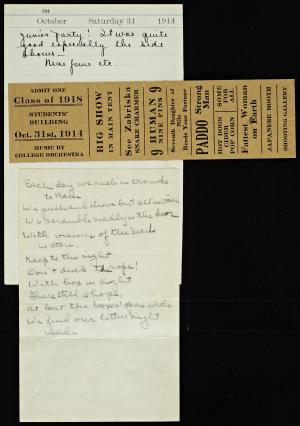 304
October Saturday 31 1914
Junior Party! It was quite
good especially the side
shows—
Nine pins etc.
ADMIT ONE
Class of 1918
STUDENTS'
BUILDING
Oct. 31st, 1914
MUSIC BY
COLLEGE ORCHESTRA
BIG SHOW
IN MAIN TENT
See Zabriska
SNAKE CHARMER
9 HUMAN 9
NINE PINS
Seventh Daughter of
Nile
Reads Your Fortune
PADDO Strong
Man
HOT DOGS SOME
CIDER FOR
POP CORN ALL
Fattest Woman
on Earth
JAPANESE BOOTH
SHOOTING GALLERY
Each day we rush in crowds
to Main
We push and shove but all in vain
We scramble madly to the door
With visions of the mail
in store,
Keep to the right
Don't duck the ropes!
With box in sight
There still is hope,
At last the boxes open wide
We find our letters right
inside